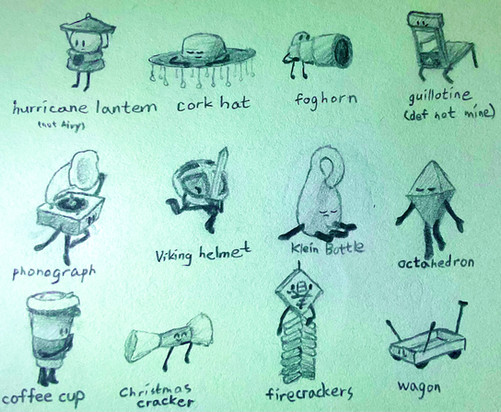 hurricane lantern
(not Airy)
cork hat
foghorn
guillotine
(def not mine)
phonograph
Viking helmet
Klein Bottle
octahedron
coffee cup
Christmas
cracker
firecrackers
wagon